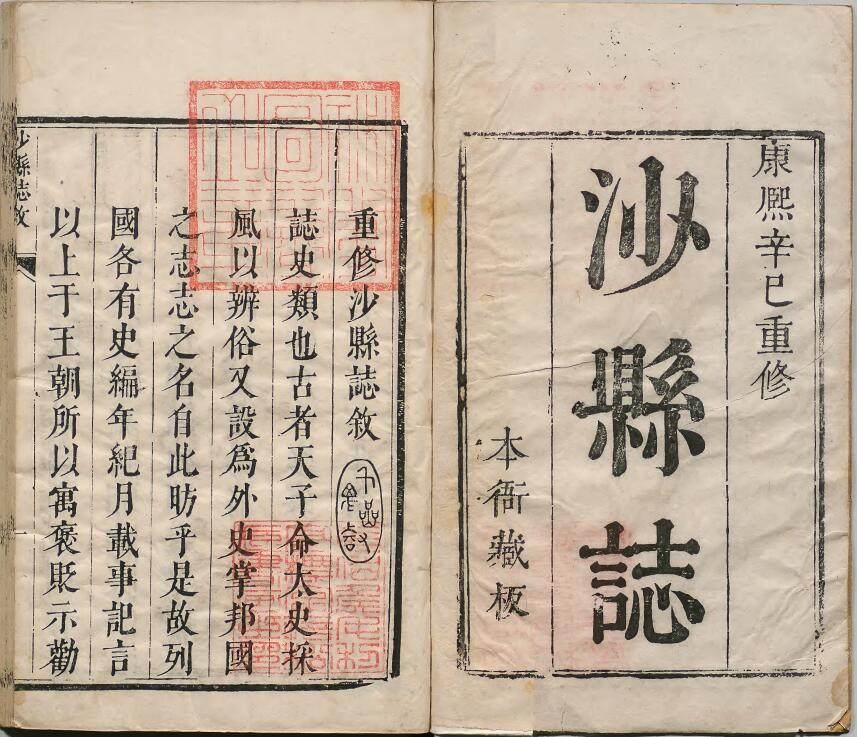 康熙辛巳重修
沙縣誌
本衙藏板
重修沙縣誌敘
誌史類也古者天子命太史採
風以辨俗又設爲外史掌邦國
之志志之名自此昉乎是故列
國各有史編年紀月載事記言
以上于王朝所以寓褒貶示勸
沙縣志敘